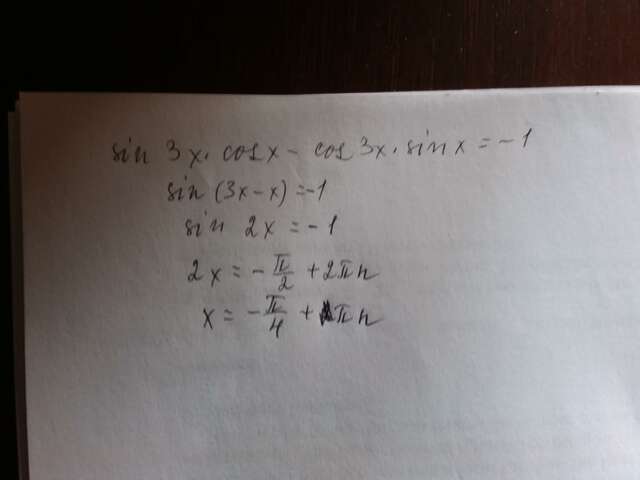 sin 3x · cos x – cos 3x · sin x = –1
sin (3x – x) = –1
sin 2x = –1
2x = – π/2 + 2πn
x = – π/4 + πn